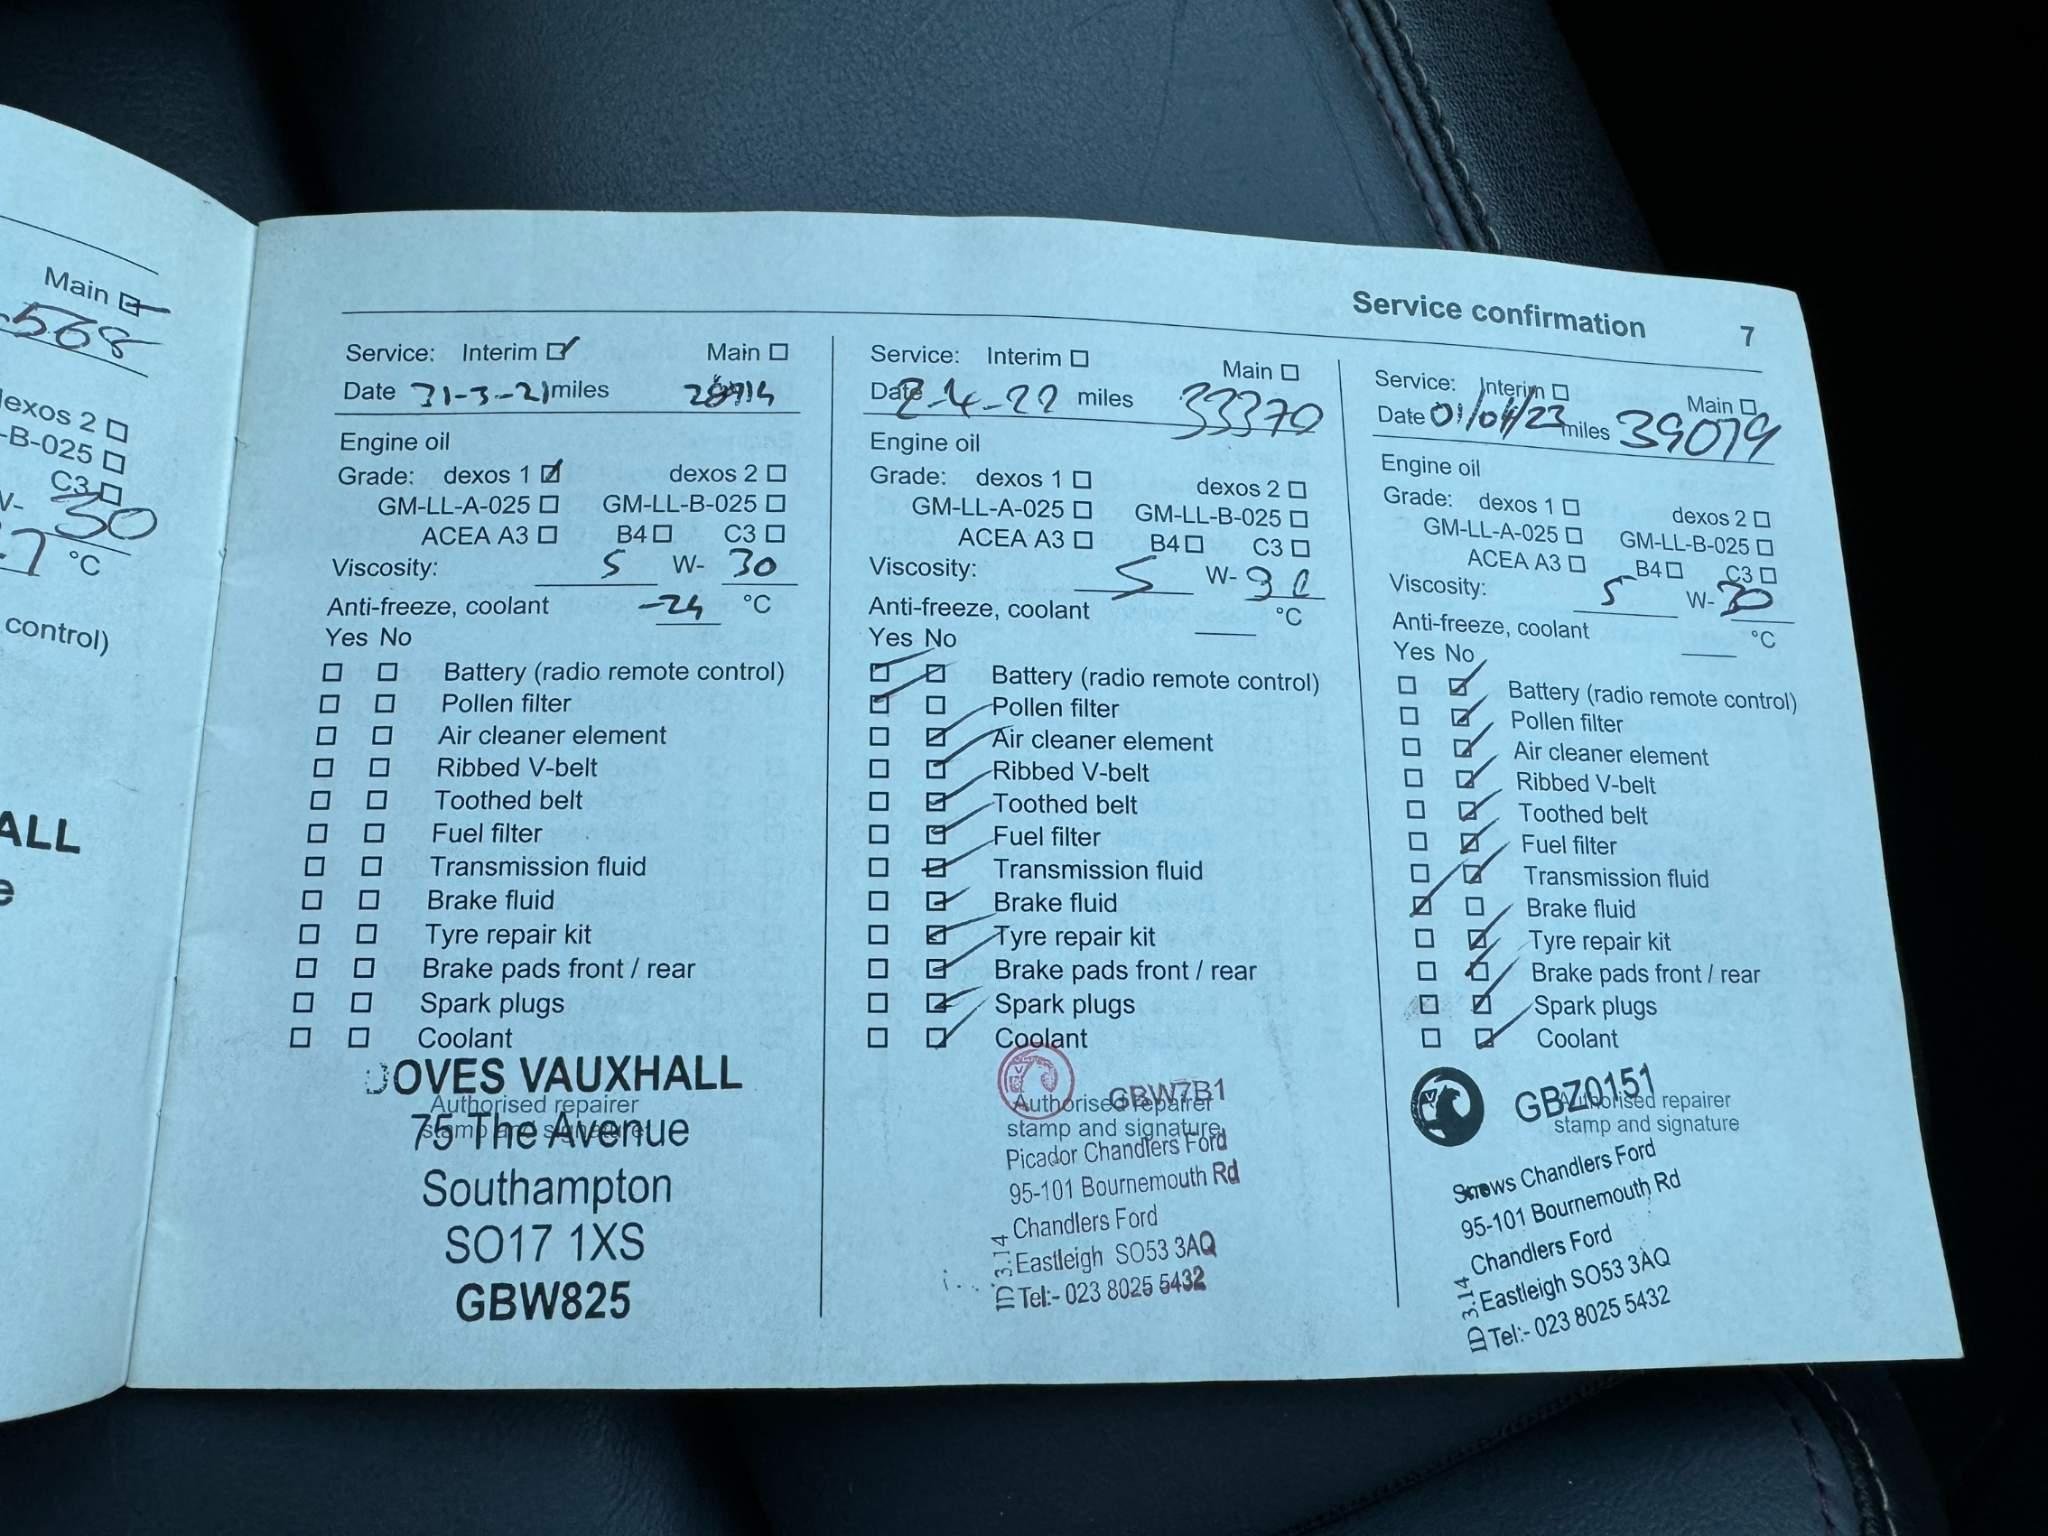 Main
568
dexos 2
-B-025
C3
W- 30
-7 °C
control)
ALL
e
Service confirmation 7
Service: Interim Main
Date 31-3-21 miles
Engine oil
Grade: dexos 1 dexos 2
GM-LL-A-025 GM-LL-B-025
ACEA A3 B4 C3
Viscosity: 5 W- 30
Anti-freeze, coolant -24 °C
Yes No
Battery (radio remote control)
Pollen filter
Air cleaner element
Ribbed V-belt
Toothed belt
Fuel filter
Transmission fluid
Brake fluid
Tyre repair kit
Brake pads front / rear
Spark plugs
Coolant
OVES VAUXHALL
Authorised repairer
stamp and signature
75 The Avenue
Southampton
SO17 1XS
GBW825
Service: Interim Main
Date 2-4-22 miles 33370
Engine oil
Grade: dexos 1 dexos 2
GM-LL-A-025 GM-LL-B-025
ACEA A3 B4 C3
Viscosity: 5 W- 30
Anti-freeze, coolant °C
Yes No
Battery (radio remote control)
Pollen filter
Air cleaner element
Ribbed V-belt
Toothed belt
Fuel filter
Transmission fluid
Brake fluid
Tyre repair kit
Brake pads front / rear
Spark plugs
Coolant
GBW7B1
Authorised repairer
stamp and signature
Picador Chandlers Ford
95-101 Bournemouth Rd
Chandlers Ford
Eastleigh SO53 3AQ
Tel:- 023 8025 5432
ID 3.14
Service: Interim Main
Date 01/04/23 miles 39079
Engine oil
Grade: dexos 1 dexos 2
GM-LL-A-025 GM-LL-B-025
ACEA A3 B4 C3
Viscosity: 5 W- 30
Anti-freeze, coolant °C
Yes No
Battery (radio remote control)
Pollen filter
Air cleaner element
Ribbed V-belt
Toothed belt
Fuel filter
Transmission fluid
Brake fluid
Tyre repair kit
Brake pads front / rear
Spark plugs
Coolant
GBZ0151
Authorised repairer
stamp and signature
Snows Chandlers Ford
95-101 Bournemouth Rd
Chandlers Ford
Eastleigh SO53 3AQ
Tel:- 023 8025 5432
ID 3.14